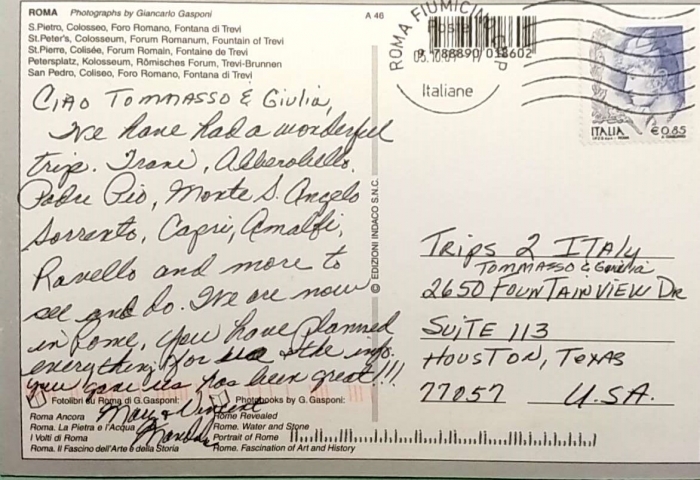 ROMA Photographs by Giancarlo Gasponi
A 46
S.Pietro, Colosseo, Foro Romano, Fontana di Trevi
St.Peter's, Colosseum, Forum Romanum, Fountain of Trevi
St.Pierre, Colisée, Forum Romain, Fontaine de Trevi
Petersplatz, Kolosseum, Römisches Forum, Trevi-Brunnen
San Pedro, Coliseo, Foro Romano, Fontana di Trevi
CIAO TOMMASSO & Giulia,
We have had a wonderful
trip. Trani, Alberobello,
Padre Pio, Monte S. Angelo
Sorrento, Capri, Amalfi,
Ravello and more to
see and do. We are now
in Rome, you have planned
everything for & the info.
you gave us has been great!!!
Mary & Vincent
© EDIZIONI INDACO S.N.C.
ROMA FIUMICINO
9 788890 013602
Italiane
ITALIA €0,85
TRIPS 2 ITALY
TOMMASSO &
2650 FOUNTAINVIEW DR
SUITE 113
HOUSTON, TEXAS
77057 U.S.A.
Fotolibri su Roma di G.Gasponi:
Roma Ancora
Roma. La Pietra e l'Acqua
I Volti di Roma
Roma. Il Fascino dell'Arte e della Storia
Photobooks by G. Gasponi:
Rome Revealed
Rome. Water and Stone
Portrait of Rome
Rome. Fascination of Art and History